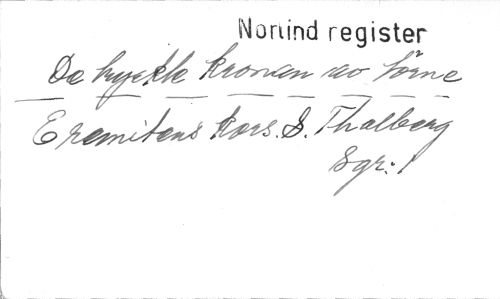 Norlind register
De tryckte kronan av törne
Eremitens kors. S. Thalberg
Sgr: 1